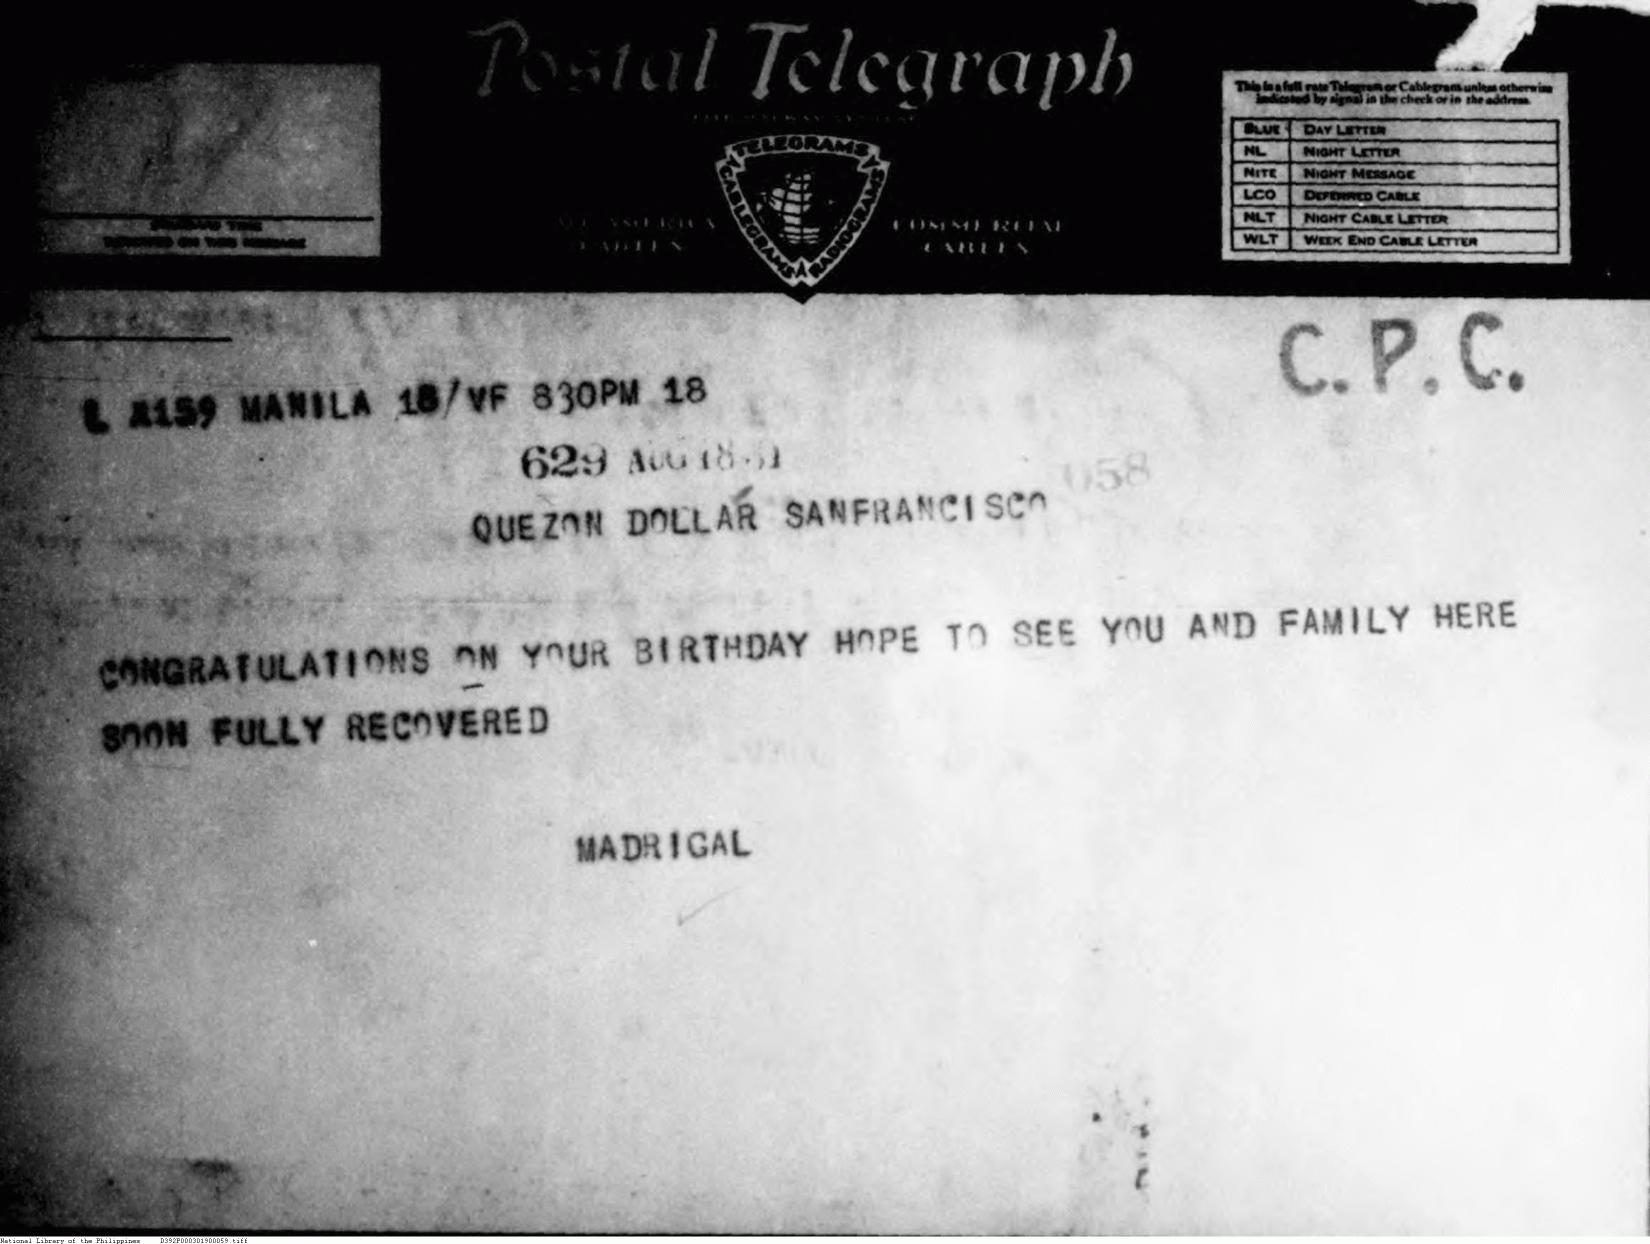 Postal Telegraph
This is a full rate Telegram or Cablegram unless otherwise
indicated by signal in the check or in the address.
BLUE DAY LETTER
NL NIGHT LETTER
NITE NIGHT MESSAGE
LCO DEFERRED CABLE
NLT NIGHT CABLE LETTER
WLT WEEK END CABLE LETTER
TELEGRAMS
CABLEGRAMS
RADIOGRAMS
COMMERCIAL
CABLES
STANDARD TIME
INDICATED ON THIS MESSAGE
C.P.C.
L A159 MANILA 18/VF 830PM 18
629 AUG 18 31
058
QUEZON DOLLAR SANFRANCISCO
CONGRATULATIONS ON YOUR BIRTHDAY HOPE TO SEE YOU AND FAMILY HERE
SOON FULLY RECOVERED
MADRIGAL
National Library of the Philippines D392P000301900059.tiff